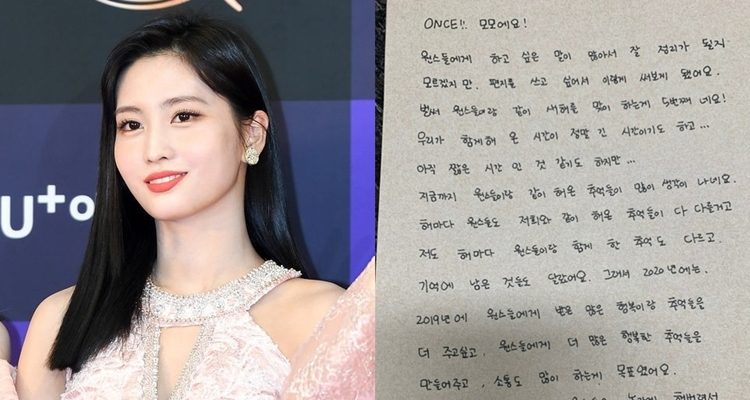 U+o
ONCE!! 모모에요!
원스들에게 하고 싶은 말이 많아서 잘 정리가 될지
모르겠지만. 편지를 쓰고 싶어서 이렇게 써보게 됐어요.
벌써 원스들이랑 같이 새해를 맞이 하는게 5번째 네요!
우리가 함께해 온 시간이 정말 긴 시간이기도 하고...
아직 짧은 시간 인 것 같기도 하지만...
지금까지 원스들이랑 같이 해온 추억들이 많이 생각이 나네요.
해마다 원스들도 저희와 같이 해온 추억들이 다 다를거고
저도 해마다 원스들이랑 함께 한 추억도 다르고.
기억에 남은 것들도 달랐어요. 그래서 2020년에는.
2019년에 원스들에게 받은 많은 행복이랑 추억들을
더 주고싶고. 원스들에게 더 많은 행복한 추억들을
만들어주고, 소통도 많이 하는게 목표였어요.